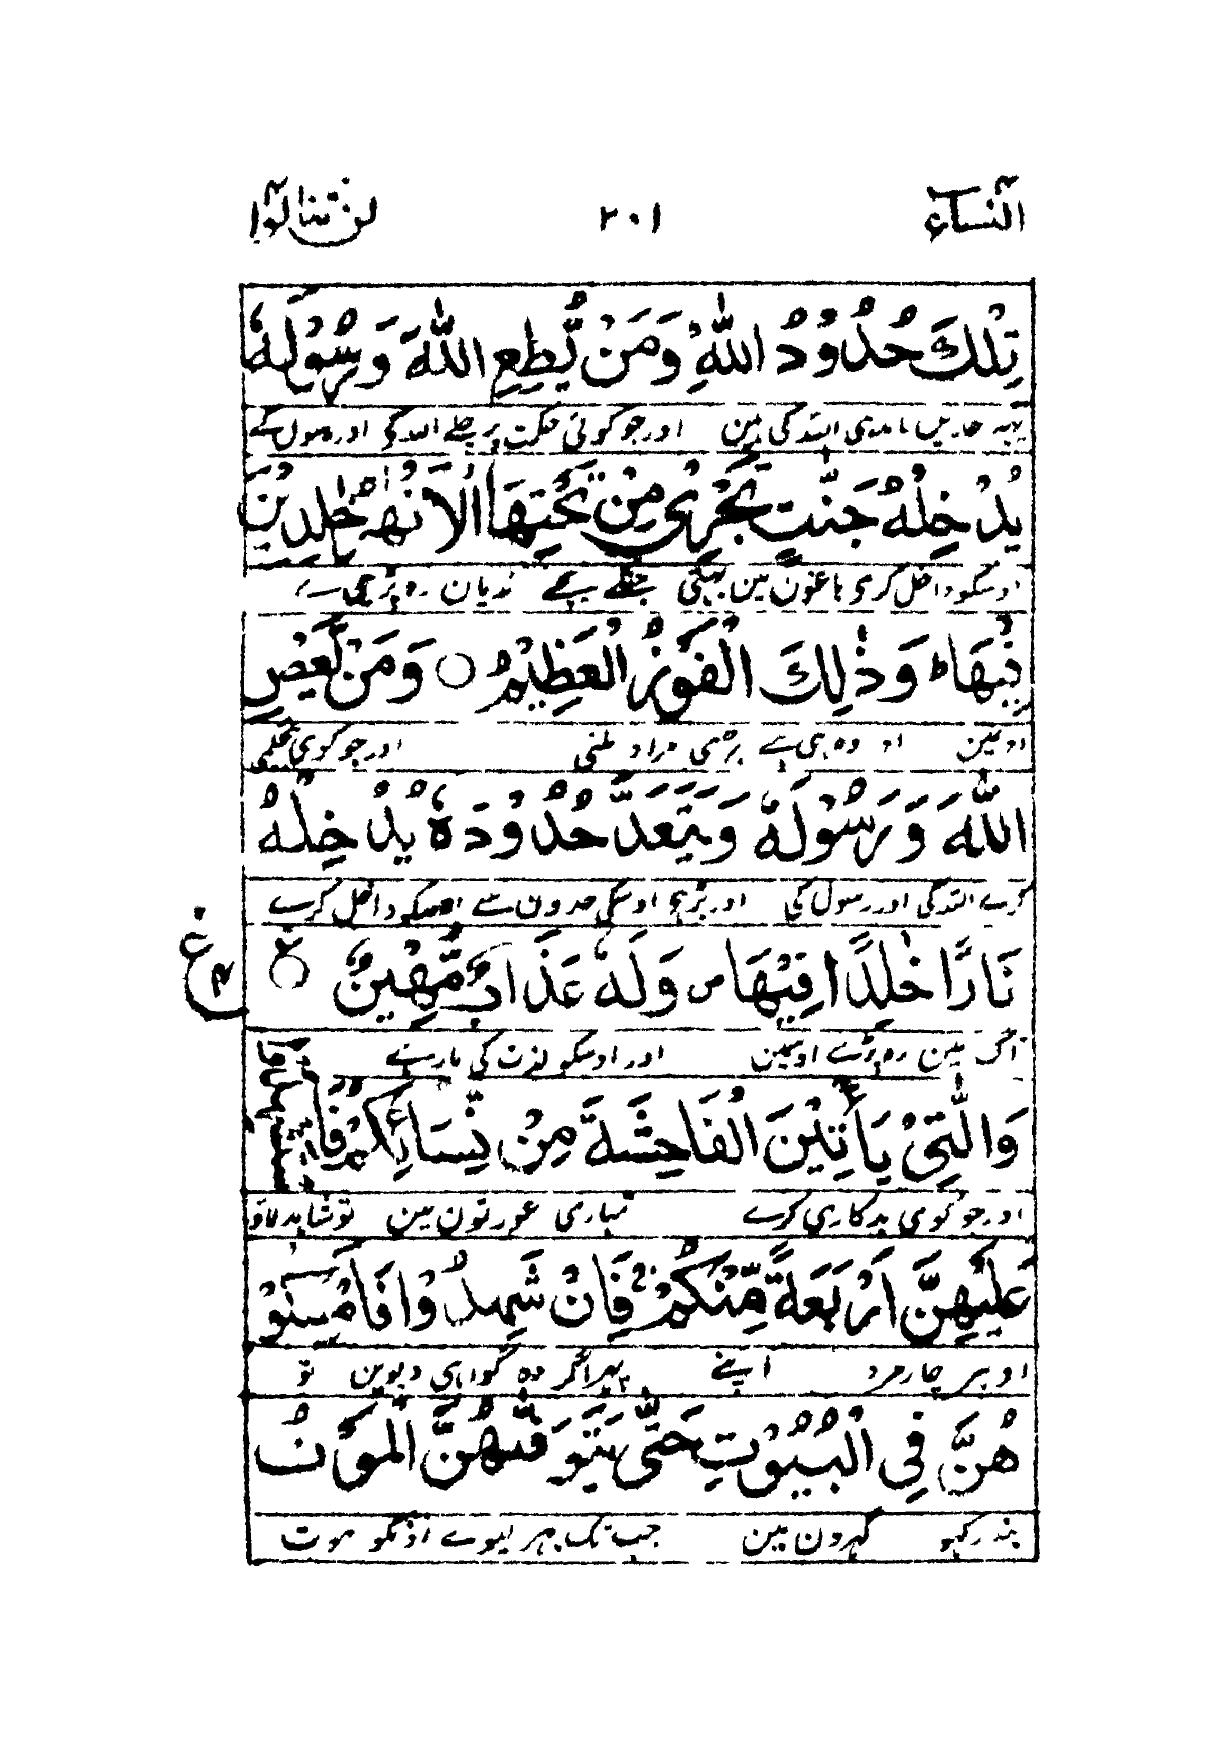 النساء ٢٠١ لن تنالوا
تِلْكَ حُدُوْدُ اللّٰهِ وَمَنْ يُّطِعِ اللّٰهَ وَرَسُوْلَهٗ
یہہ حدیں باندہی اللہ کی ہین اور جو کوئی حکمت پر چلے اللہ کے اور رسول کے
يُدْخِلْهُ جَنّٰتٍ تَجْرِيْ مِنْ تَحْتِهَا الْاَنْهٰرُ خٰلِدِيْنَ
اوسکو داخل کری باغون مین بہتی جنکے نیچے ندیان رہ پڑے
فِيْهَا ؕ وَذٰلِكَ الْفَوْزُ الْعَظِيْمُ ○ وَمَنْ يَّعْصِ
اونمین او وہ ہی ہے بڑی مراد ملنی اور جو کوی بیحکمی
اللّٰهَ وَرَسُوْلَهٗ وَيَتَعَدَّ حُدُوْدَهٗ يُدْخِلْهُ
کرے اللہ کی اور رسول کی اور بڑہے اوسکی حدون سے اوسکو داخل کرے
نَارًا خٰلِدًا فِيْهَا ص وَلَهٗ عَذَابٌ مُّهِيْنٌ ○ ع
آگ مین رہ پڑے اوسمین اور اوسکو لذت کی مار ہے
وَالّٰتِيْ يَاْتِيْنَ الْفَاحِشَةَ مِنْ نِّسَآئِكُمْ فَا
اور جو کوی بدکاری کرے تمہاری عورتون مین تو شاہد لاؤ
عَلَيْهِنَّ اَرْبَعَةً مِّنْكُمْ ج فَاِنْ شَهِدُوْا فَاَمْسِكُوْ
اوپر چار مرد اپنے پہر اگر وہ گواہی دیوین تو
هُنَّ فِي الْبُيُوْتِ حَتّٰى يَتَوَفّٰهُنَّ الْمَوْتُ
بند رکہو گہرون مین جب تک بہر لیوے اونکو موت